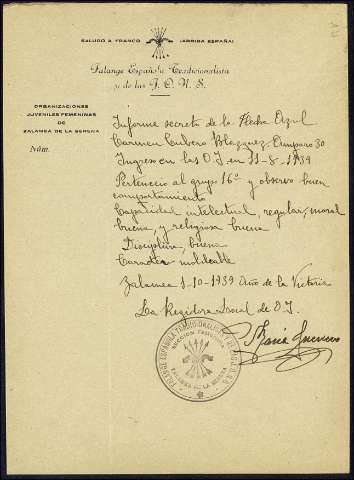 SALUDO A FRANCO ¡ARRIBA ESPAÑA!
Falange Española Tradicionalista
y de las J.O.N.S.
ORGANIZACIONES
JUVENILES FEMENINAS
DE
ZALAMEA DE LA SERENA
Núm.
Informe secreto de la Flecha Azul
Carmen Cubero Blazquez, Amparo 30
Ingreso en las O.J en 11-8-1939
Pertenecio al grupo 16º y observo buen
comportamiento
Capacidad intelectual, regular, moral
buena, y religiosa buena
Disciplina, buena
Caracter moldeable
Zalamea 1-10-1939 Año de la Victoria
La Regidora Local de O.J.
Maria Guerrero
FALANGE ESPAÑOLA TRADICIONALISTA Y DE LAS J.O.N.S.
SECCION FEMENINA
ZALAMEA DE LA SERENA